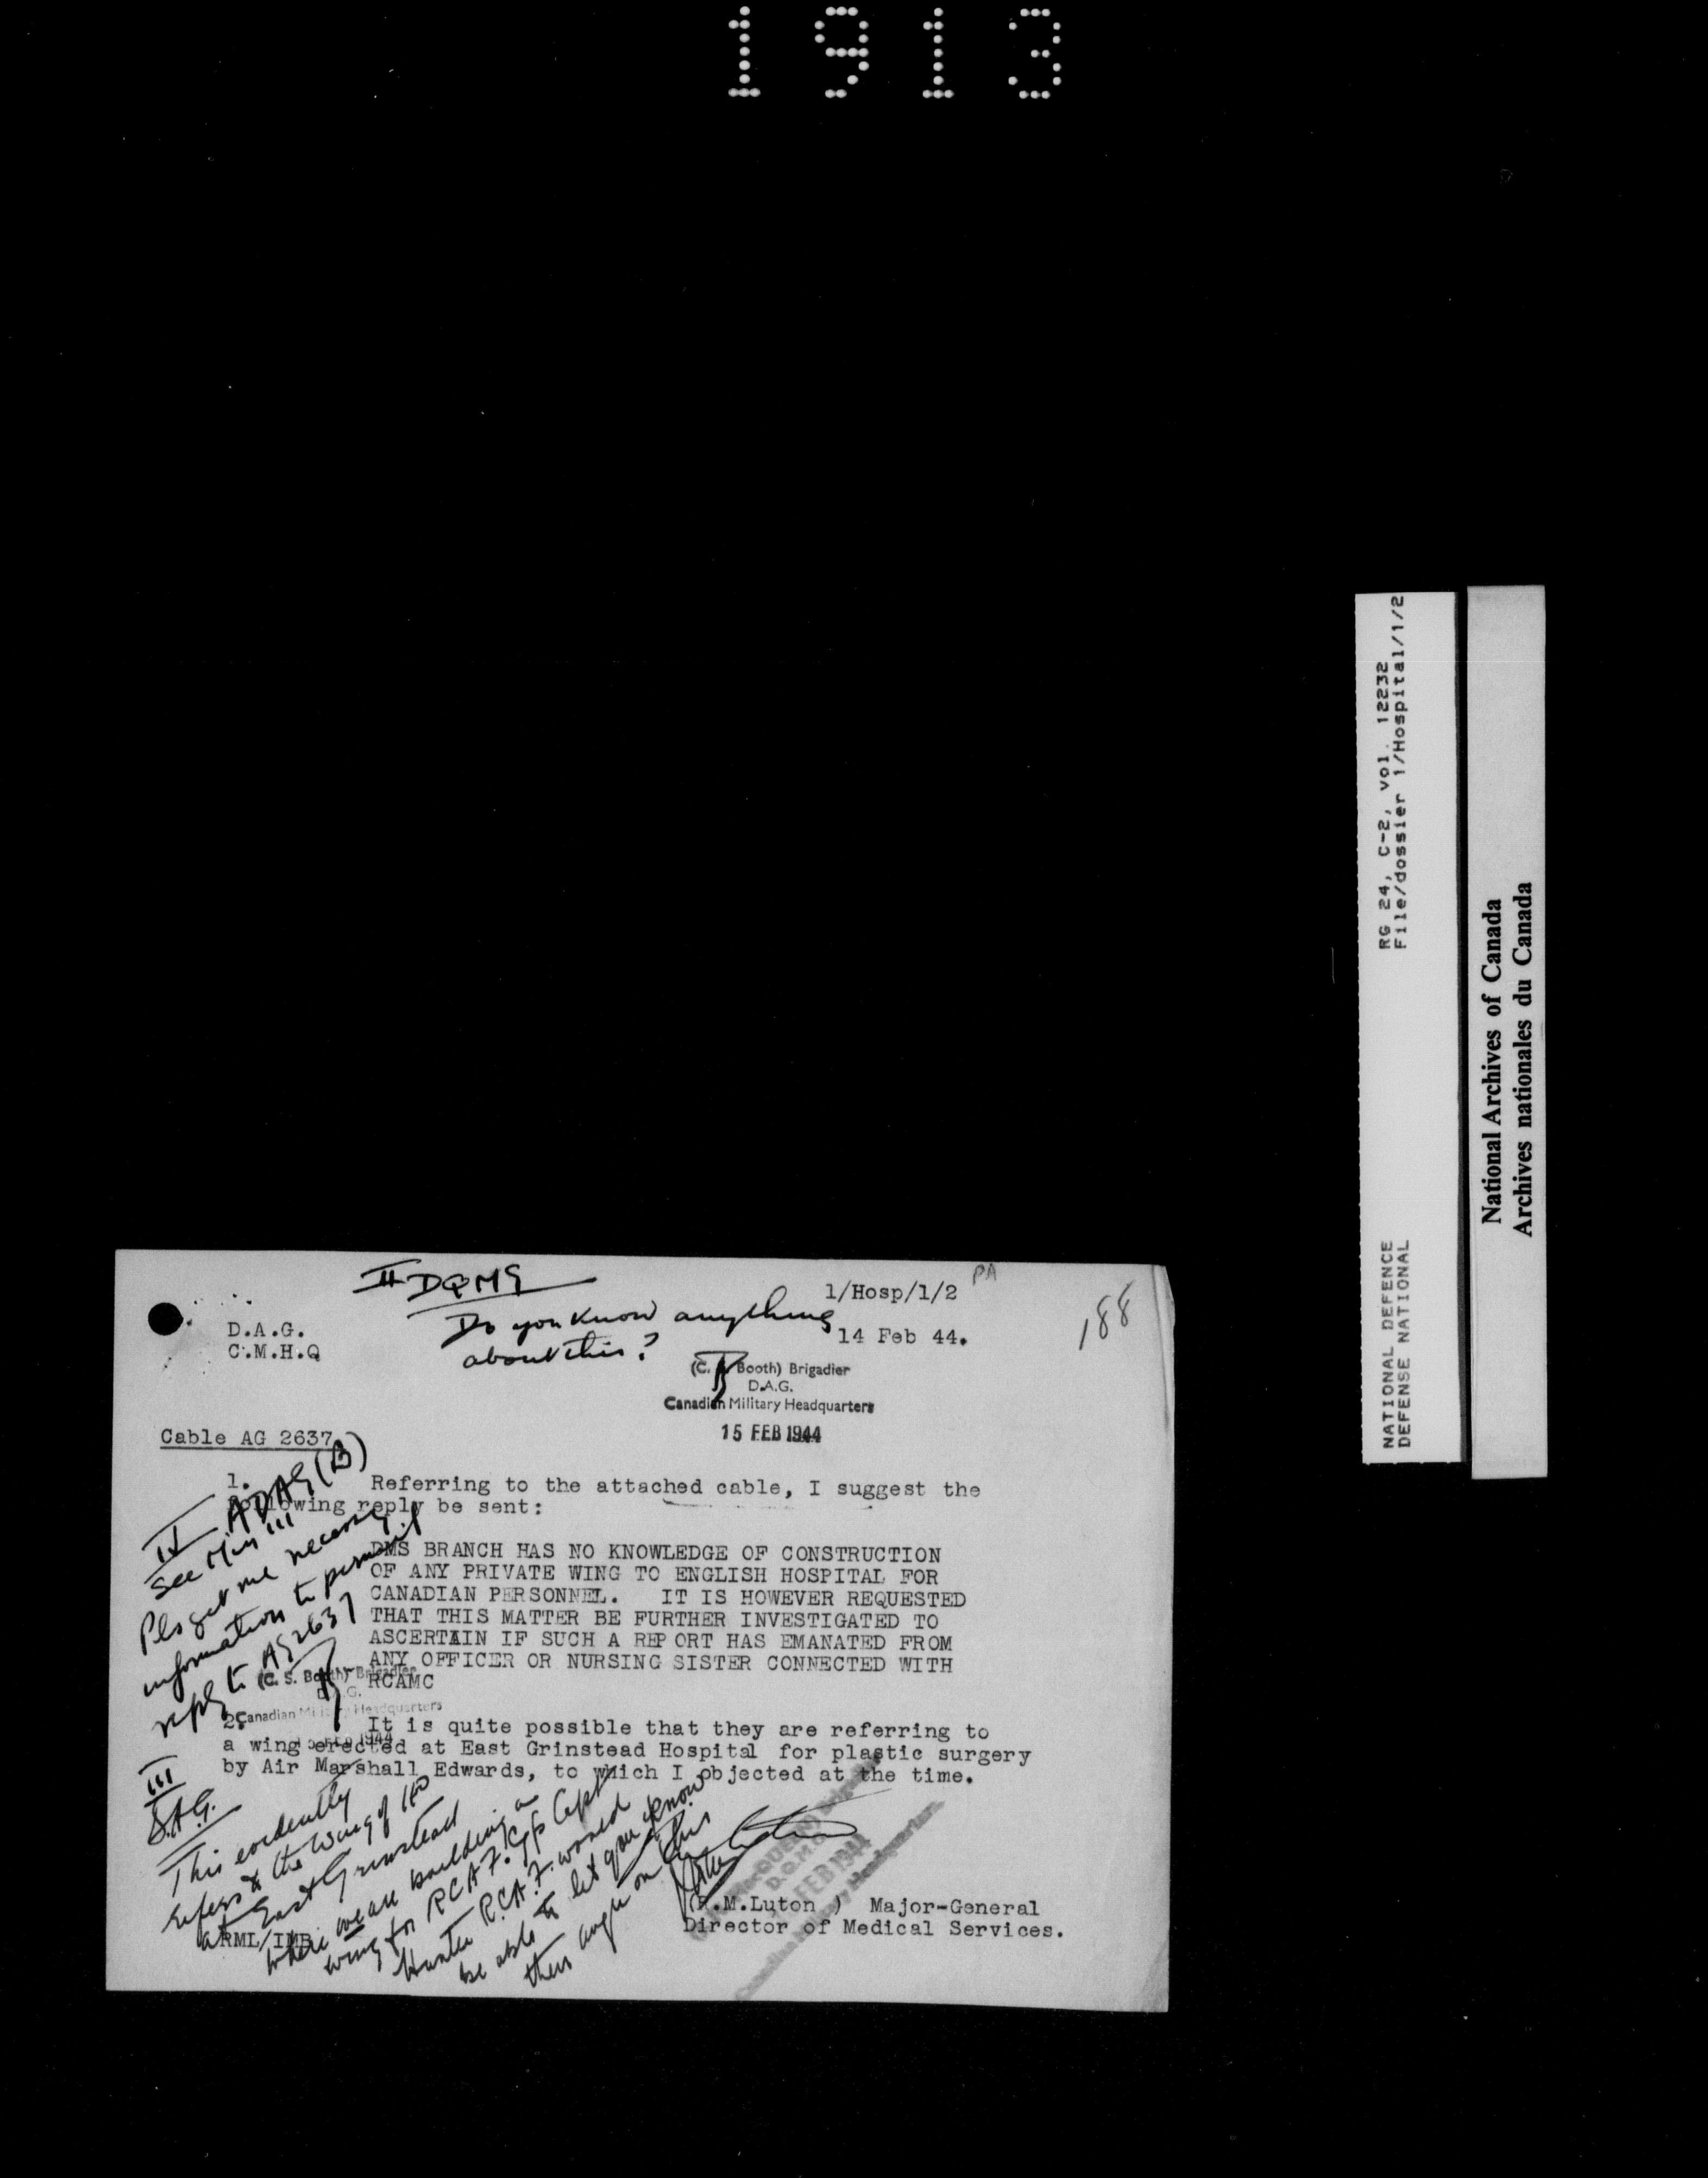 1913
II DQMG
1/Hosp/1/2
PA
188
D.A.G.
C.M.H.Q
Do you know anything
about this?
14 Feb 44.
(C. S. Booth) Brigadier
D.A.G.
Canadian Military Headquarters
15 FEB 1944
Cable AG 2637
1. Referring to the attached cable, I suggest the
following reply be sent:
DMS BRANCH HAS NO KNOWLEDGE OF CONSTRUCTION
OF ANY PRIVATE WING TO ENGLISH HOSPITAL FOR
CANADIAN PERSONNEL. IT IS HOWEVER REQUESTED
THAT THIS MATTER BE FURTHER INVESTIGATED TO
ASCERTAIN IF SUCH A REPORT HAS EMANATED FROM
ANY OFFICER OR NURSING SISTER CONNECTED WITH
RCAMC
2. It is quite possible that they are referring to
a wing erected at East Grinstead Hospital for plastic surgery
by Air Marshall Edwards, to which I objected at the time.
(R.M.Luton ) Major-General
Director of Medical Services.
RML/IMB
IV ADAG (B)
See Min III
Pls get me necessary
information to permit
reply to AG 2637
(C. S. Booth) Brigadier
D.A.G.
Canadian Military Headquarters
FEB 1944
III
D.A.G.
This evidently
refers to the wing of
at East Grinstead
where we are building a
wing for RCAF. Gp Capt
Hunter R.C.A.F. would
be able to let you know
their angle on this
D.Q.M.G.
FEB 1944
Canadian Military Headquarters
RG 24, C-2, vol. 12232
File/dossier 1/Hospital/1/2
NATIONAL DEFENCE
DEFENSE NATIONAL
National Archives of Canada
Archives nationales du Canada